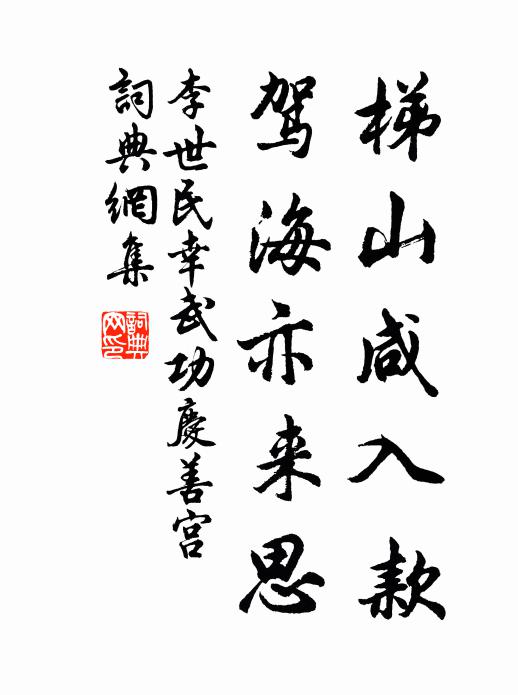 梯山咸入款
駕海亦来思
李世民幸武功慶善宫
詞典網集
詞典网印